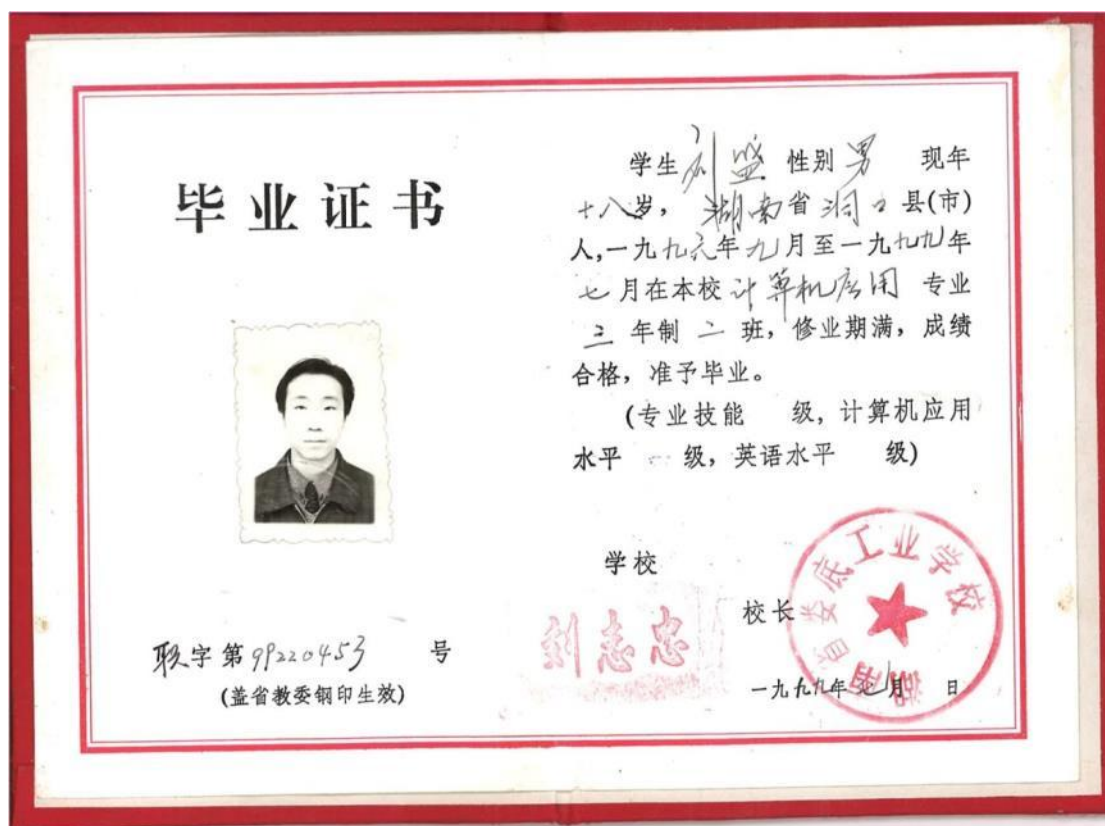 毕业证书
职字第99220453号
(盖省教委钢印生效)
学生 刘盛 性别 男 现年
十八岁, 湖南省洞口县(市)
人,一九九六年九月至一九九九年
七月在本校计算机应用专业
三年制二班, 修业期满, 成绩
合格, 准予毕业。
(专业技能 级, 计算机应用
水平 一 级, 英语水平 级)
学校
校长
刘志忠
湖南省娄底工业学校
一九九九年七月 日